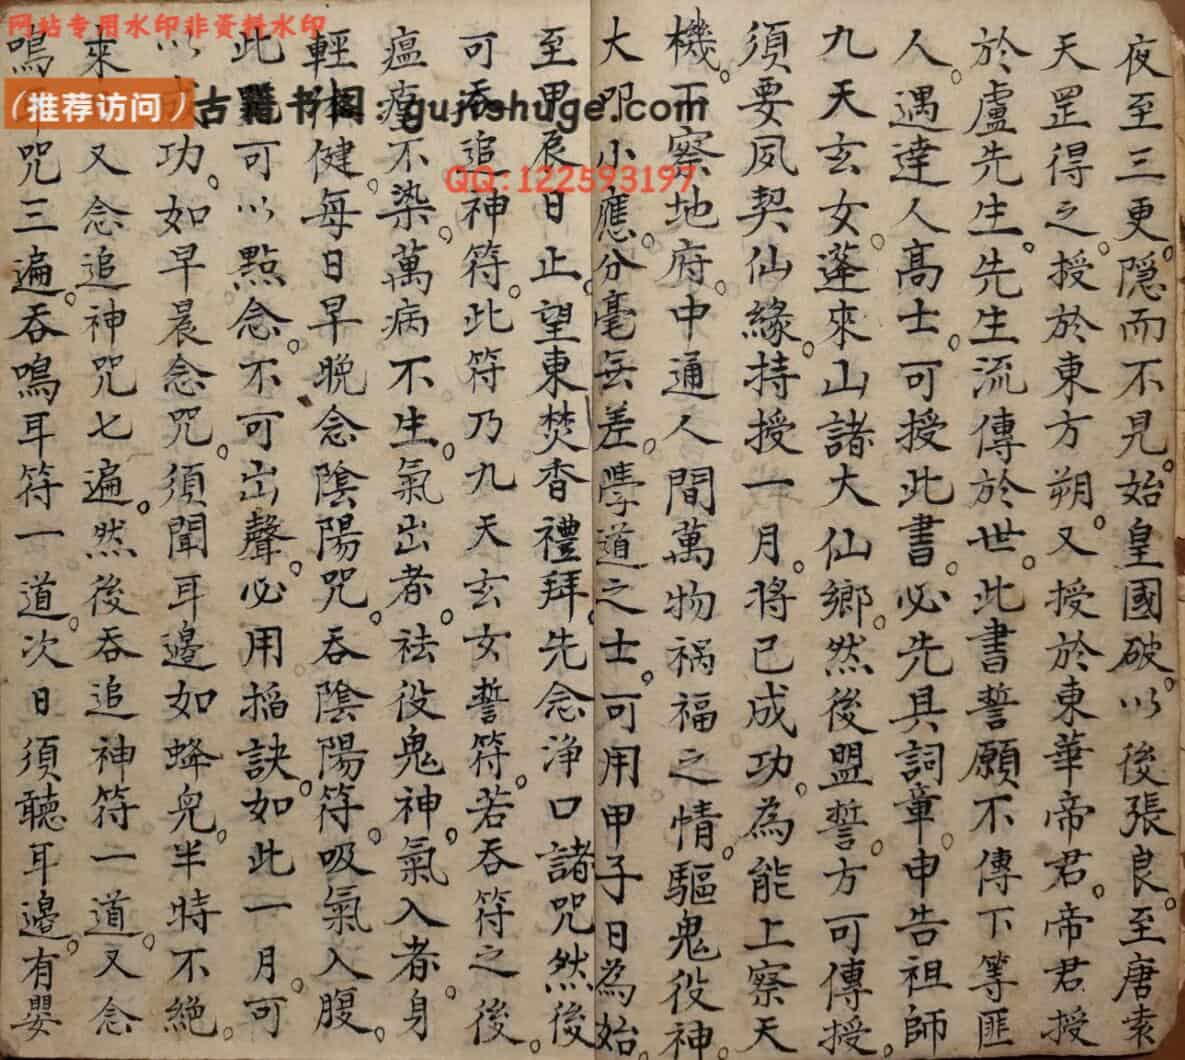 网站专用水印非资料水印
（推荐访问）古籍书阁：gujishuge.com
QQ:122593197
夜至三更。隐而不見。始皇國破。以後張良。至唐袁
天罡得之。授於東方朔。又授於東華帝君。帝君授
於盧先生。先生流傳於世。此書誓願不傳下等匪
人。遇達人高士。可授此書。必先具詞章。申告祖師
九天玄女。蓬來山諸大仙鄉。然後盟誓。方可傳授。
須要夙契仙緣。持授一月。將已成功。為能上察天
機。下察地府。中通人間萬物禍福之情。驅鬼役神。
大叩小應。分毫無差。學道之士。可用甲子日為始。
至甲辰日止。望東焚香禮拜。先念净口諸咒。然後
可吞追神符。此符乃九天玄女誓符。若吞符之後。
瘟不染。萬病不生。氣出者。祛役鬼神。氣入者。身
輕健。每日早晚念陰陽咒。吞陰陽符。吸氣入腹。
此可以點念。不可出聲。必用掐訣。如此一月。可
以成功。如早晨念咒。須聞耳邊如蜂皃。半時不絶。
來又念追神咒七遍。然後吞追神符一道。又念
鳴耳咒三遍。吞鳴耳符一道。次日須聽耳邊。有嬰